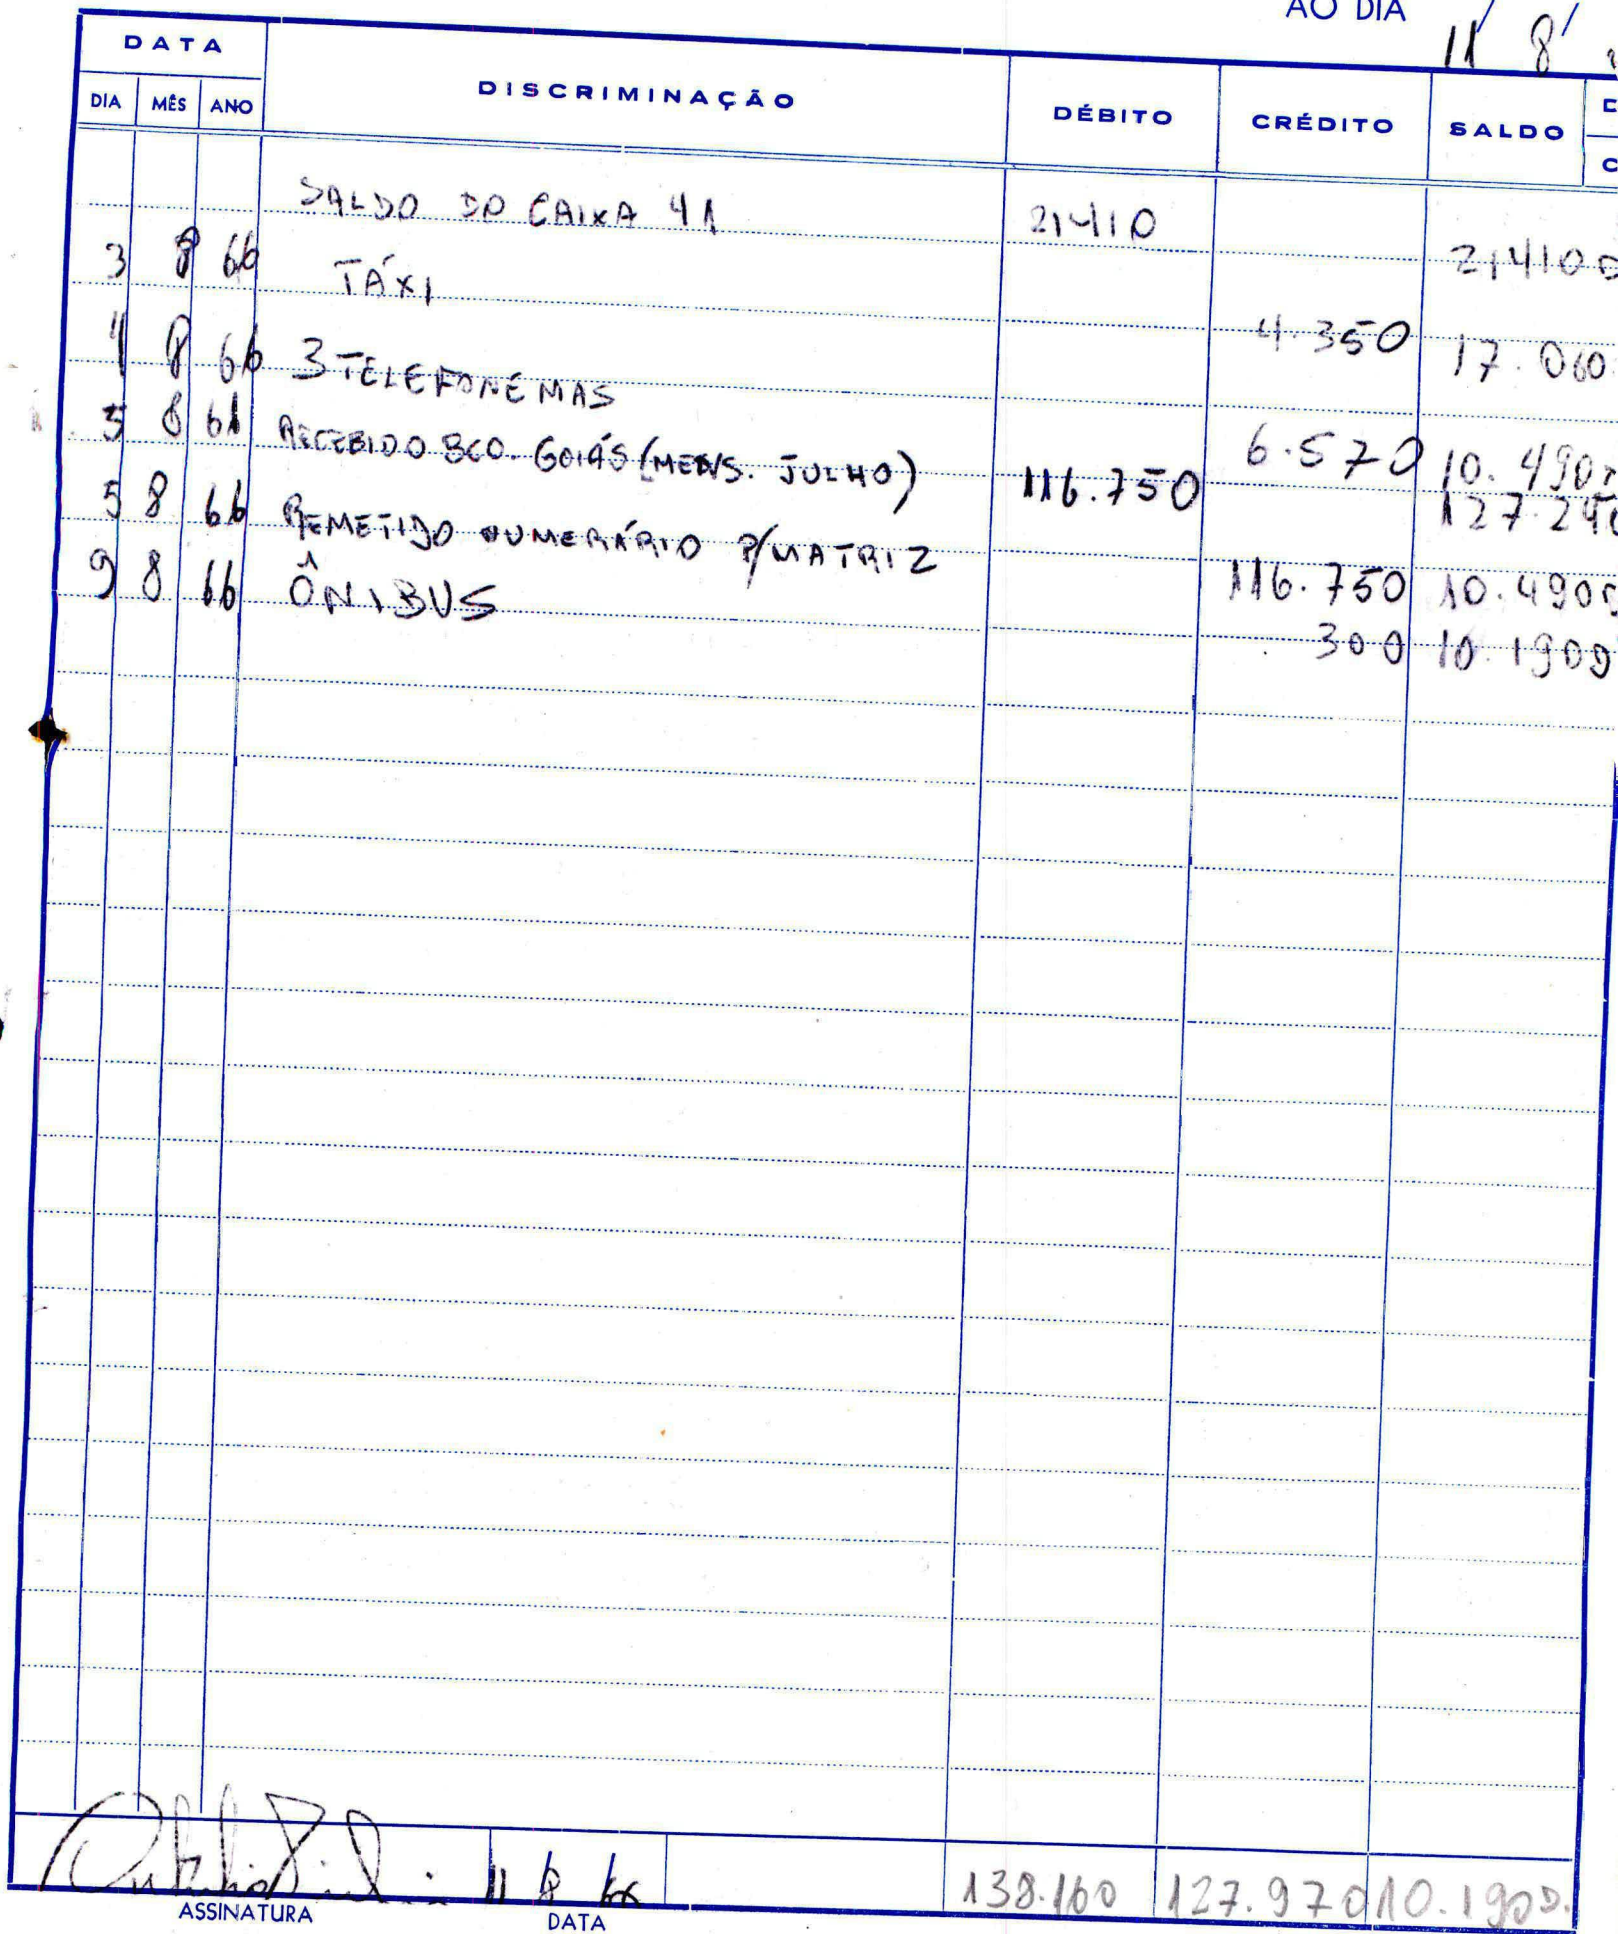 AO DIA 11/ 8/
DATA
DIA MÊS ANO DISCRIMINAÇÃO DÉBITO CRÉDITO SALDO D
C
SALDO DO CAIXA 41 21410 21410 D
3 8 66 TÁXI 4.350 17.060
4 8 66 3 TELEFONEMAS 6.570 10.490
5 8 66 RECEBIDO BCO. GOIÁS (MENS. JULHO) 116.750 127.240
5 8 66 REMETIDO NUMERÁRIO P/MATRIZ 116.750 10.490 D
9 8 66 ÔNIBUS 300 10.190 D
11/8/66 138.160 127.970 10.190 D.
ASSINATURA DATA